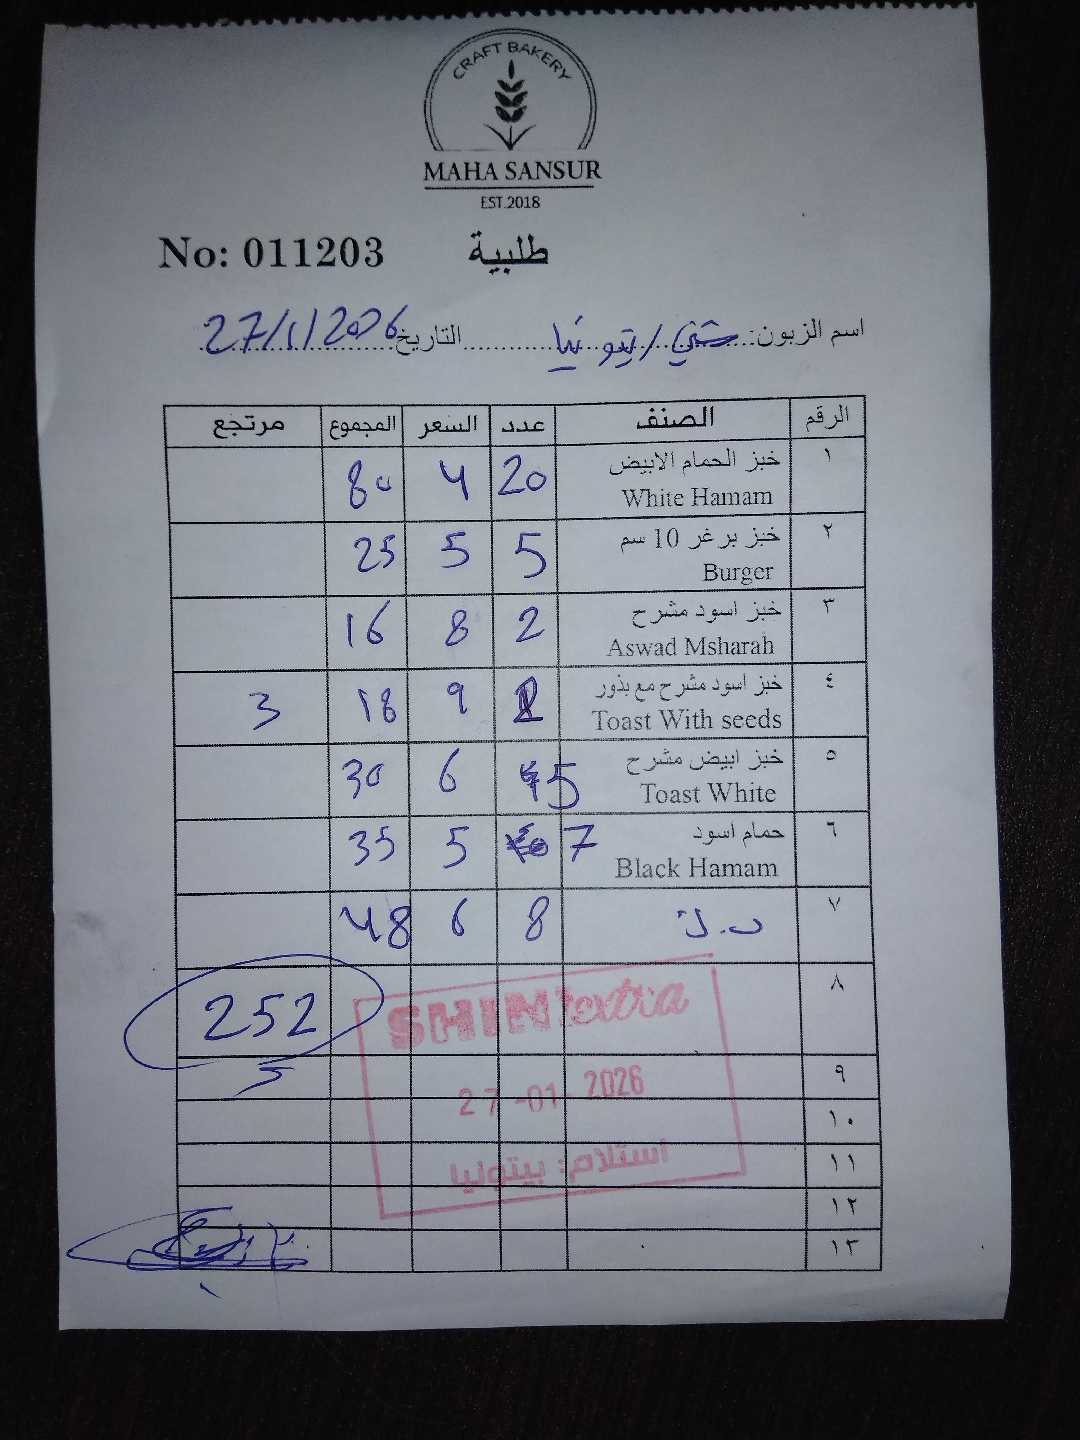 CRAFT BAKERY
MAHA SANSUR
EST.2018
No: 011203 طلبية
اسم الزبون: شني / بيتونيا التاريخ 27/1/2026
الرقم الصنف عدد السعر المجموع مرتجع
١ خبز الحمام الابيض White Hamam 20 4 80
٢ خبز برغر 10 سم Burger 5 5 25
٣ خبز اسود مشرح Aswad Msharah 2 8 16
٤ خبز اسود مشرح مع بذور Toast With seeds 2 9 18 3
٥ خبز ابيض مشرح Toast White 5 6 30
٦ حمام اسود Black Hamam 7 5 35
٧ 8 6 48
٨ 252
٩
١٠
١١
١٢
١٣
SHINI extra
27-01 2026
استلام: بيتونيا